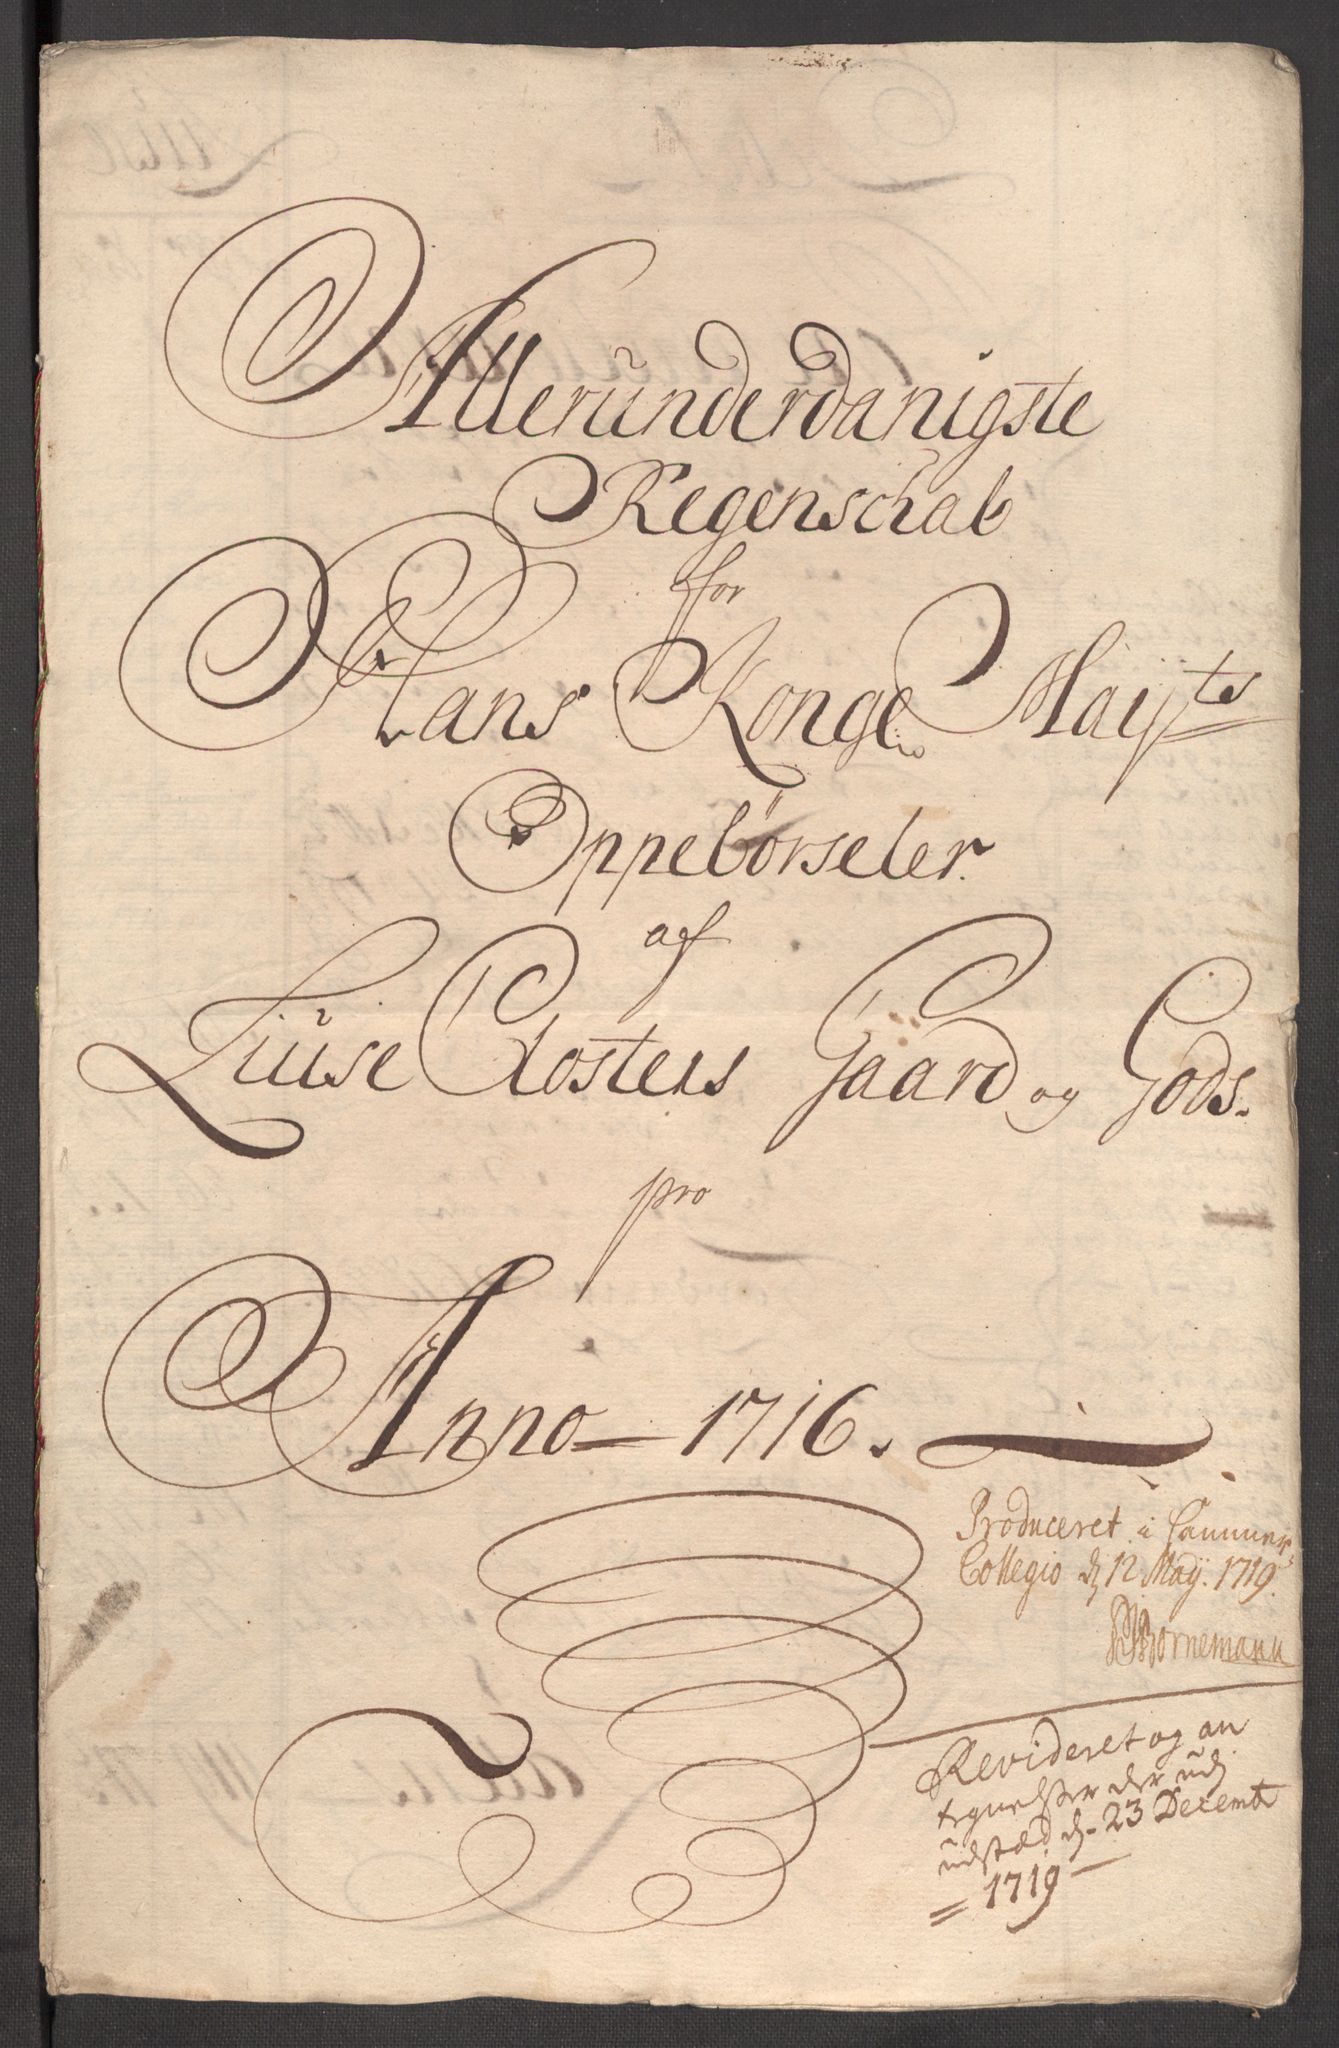 Alleründerdanigste
Regenschab
for
Hans Konge Mayts
Oppebörseler
af
Liüse Closters Gaard og Gods.
pro
Anno 1716.
Produceret i Cammer
Collegio d 12 Maÿ. 1719.
Bornemann
Revideret og an
tegnelser der udj
udstæd d. 23 Decemb
1719